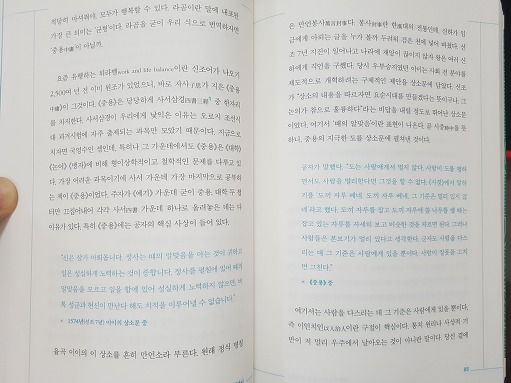 적당히 마셔줘야, 모두가 행복할 수 있다. 라곰이란 말에 내포된
가장 큰 의미는 '균형'이다. 라곰을 굳이 우리 식으로 번역하자면
'중용中庸'이 아닐까.
요즘 유행하는 워라밸work and life balance이란 신조어가 나오기
2,500여 년 전 이미 원조가 있었으니, 바로 자사子思가 지은 《중용
中庸》이 그것이다. 《중용》은 당당하게 사서삼경四書三經 중 한자리
를 차지한다. 사서삼경이 우리에게 낯익은 이유는 오로지 조선시
대 과거시험에 자주 출제되는 과목만 모았기 때문이다. 지금으로
치자면 국영수인 셈인데, 특히나 그 가운데에서도 《중용》은 《대학》
《논어》 《맹자》에 비해 형이상학적이고 철학적인 문제를 다루고 있
다. 가장 어려운 과목이기에 사서 가운데 가장 마지막으로 공부하
는 책이 《중용》이었다. 주자가 《예기》 가운데 굳이 중용, 대학 두 챕
터만 끄집어내어 각각 사서四書 가운데 하나로 올려놓은 데는 다
이유가 있다. 특히 《중용》에는 공자의 핵심 사상이 들어 있다.
"신은 삼가 아뢰옵니다. 정사는 때의 알맞음을 아는 것이 귀하고
일은 성실하게 노력하는 것이 중합니다. 정사를 펼침에 있어 때의
알맞음을 모르고 일을 함에 있어 성실하게 노력하지 않으면, 비
록 성군과 현신이 만난다 해도 치적을 이루어낼 수 없습니다."
• 1574년(선조7년) 이이의 상소문 중
율곡 이이의 이 상소를 흔히 만언소라 부른다. 원래 정식 명칭
은 만언봉사萬言封事다. 봉사封事란 한漢대의 전통인데, 신하가 임
금에게 아뢰는 글을 누가 볼까 두려워 검은 천에 넣어 바쳤다. 선
조 7년 지진이 일어나고 나라에 재앙이 끊이지 않자 왕은 여러 신
하에게 직언을 구했다. 당시 우부승지였던 이이는 사회 전 분야를
제도적으로 개혁하려는 구체적인 제안을 상소문에 담았다. 선조
가 "상소의 내용을 따르자면 요순시대를 만들겠다는 뜻이구나. 그
논의가 참으로 훌륭하다"라는 비답을 내릴 정도로 뛰어난 상소문
이었다. 여기서 '때의 알맞음'이란 표현이 나온다. 곧 시중時中을 뜻
하니, 중용의 지극한 도를 상소문에 펼쳤던 것이다.
공자가 말했다. "도는 사람에게서 멀지 않다. 사람이 도를 행하
면서도 사람을 멀리한다면 그것을 할 수 없다. 《시경》에서 말하
기를 '도끼 자루 베네, 도끼 자루 베네, 그 기준은 멀리 있지 않
네'라고 했다. 도끼 자루를 잡고 도끼 자루에 쓸 나무를 벨 때는
잡고 있는 자루를 자세히 보고 비슷한 것을 자르면 된다. 그러나
사람들은 본보기가 멀리 있다고 생각한다. 군자도 사람을 다스
리는 데 그 기준은 사람에게 있을 뿐이다. 사람이 잘못을 고치
면 그친다."
• 《중용》 중
여기서는 사람을 다스리는 데 그 기준은 사람에게 있을 뿐이다,
즉 이인치인以人治人이란 구절이 핵심이다. 통치 원리나 사상적 기
반이 저 멀리 우주에서 날아오는 것이 아니란 말이다. 당신 곁에
85